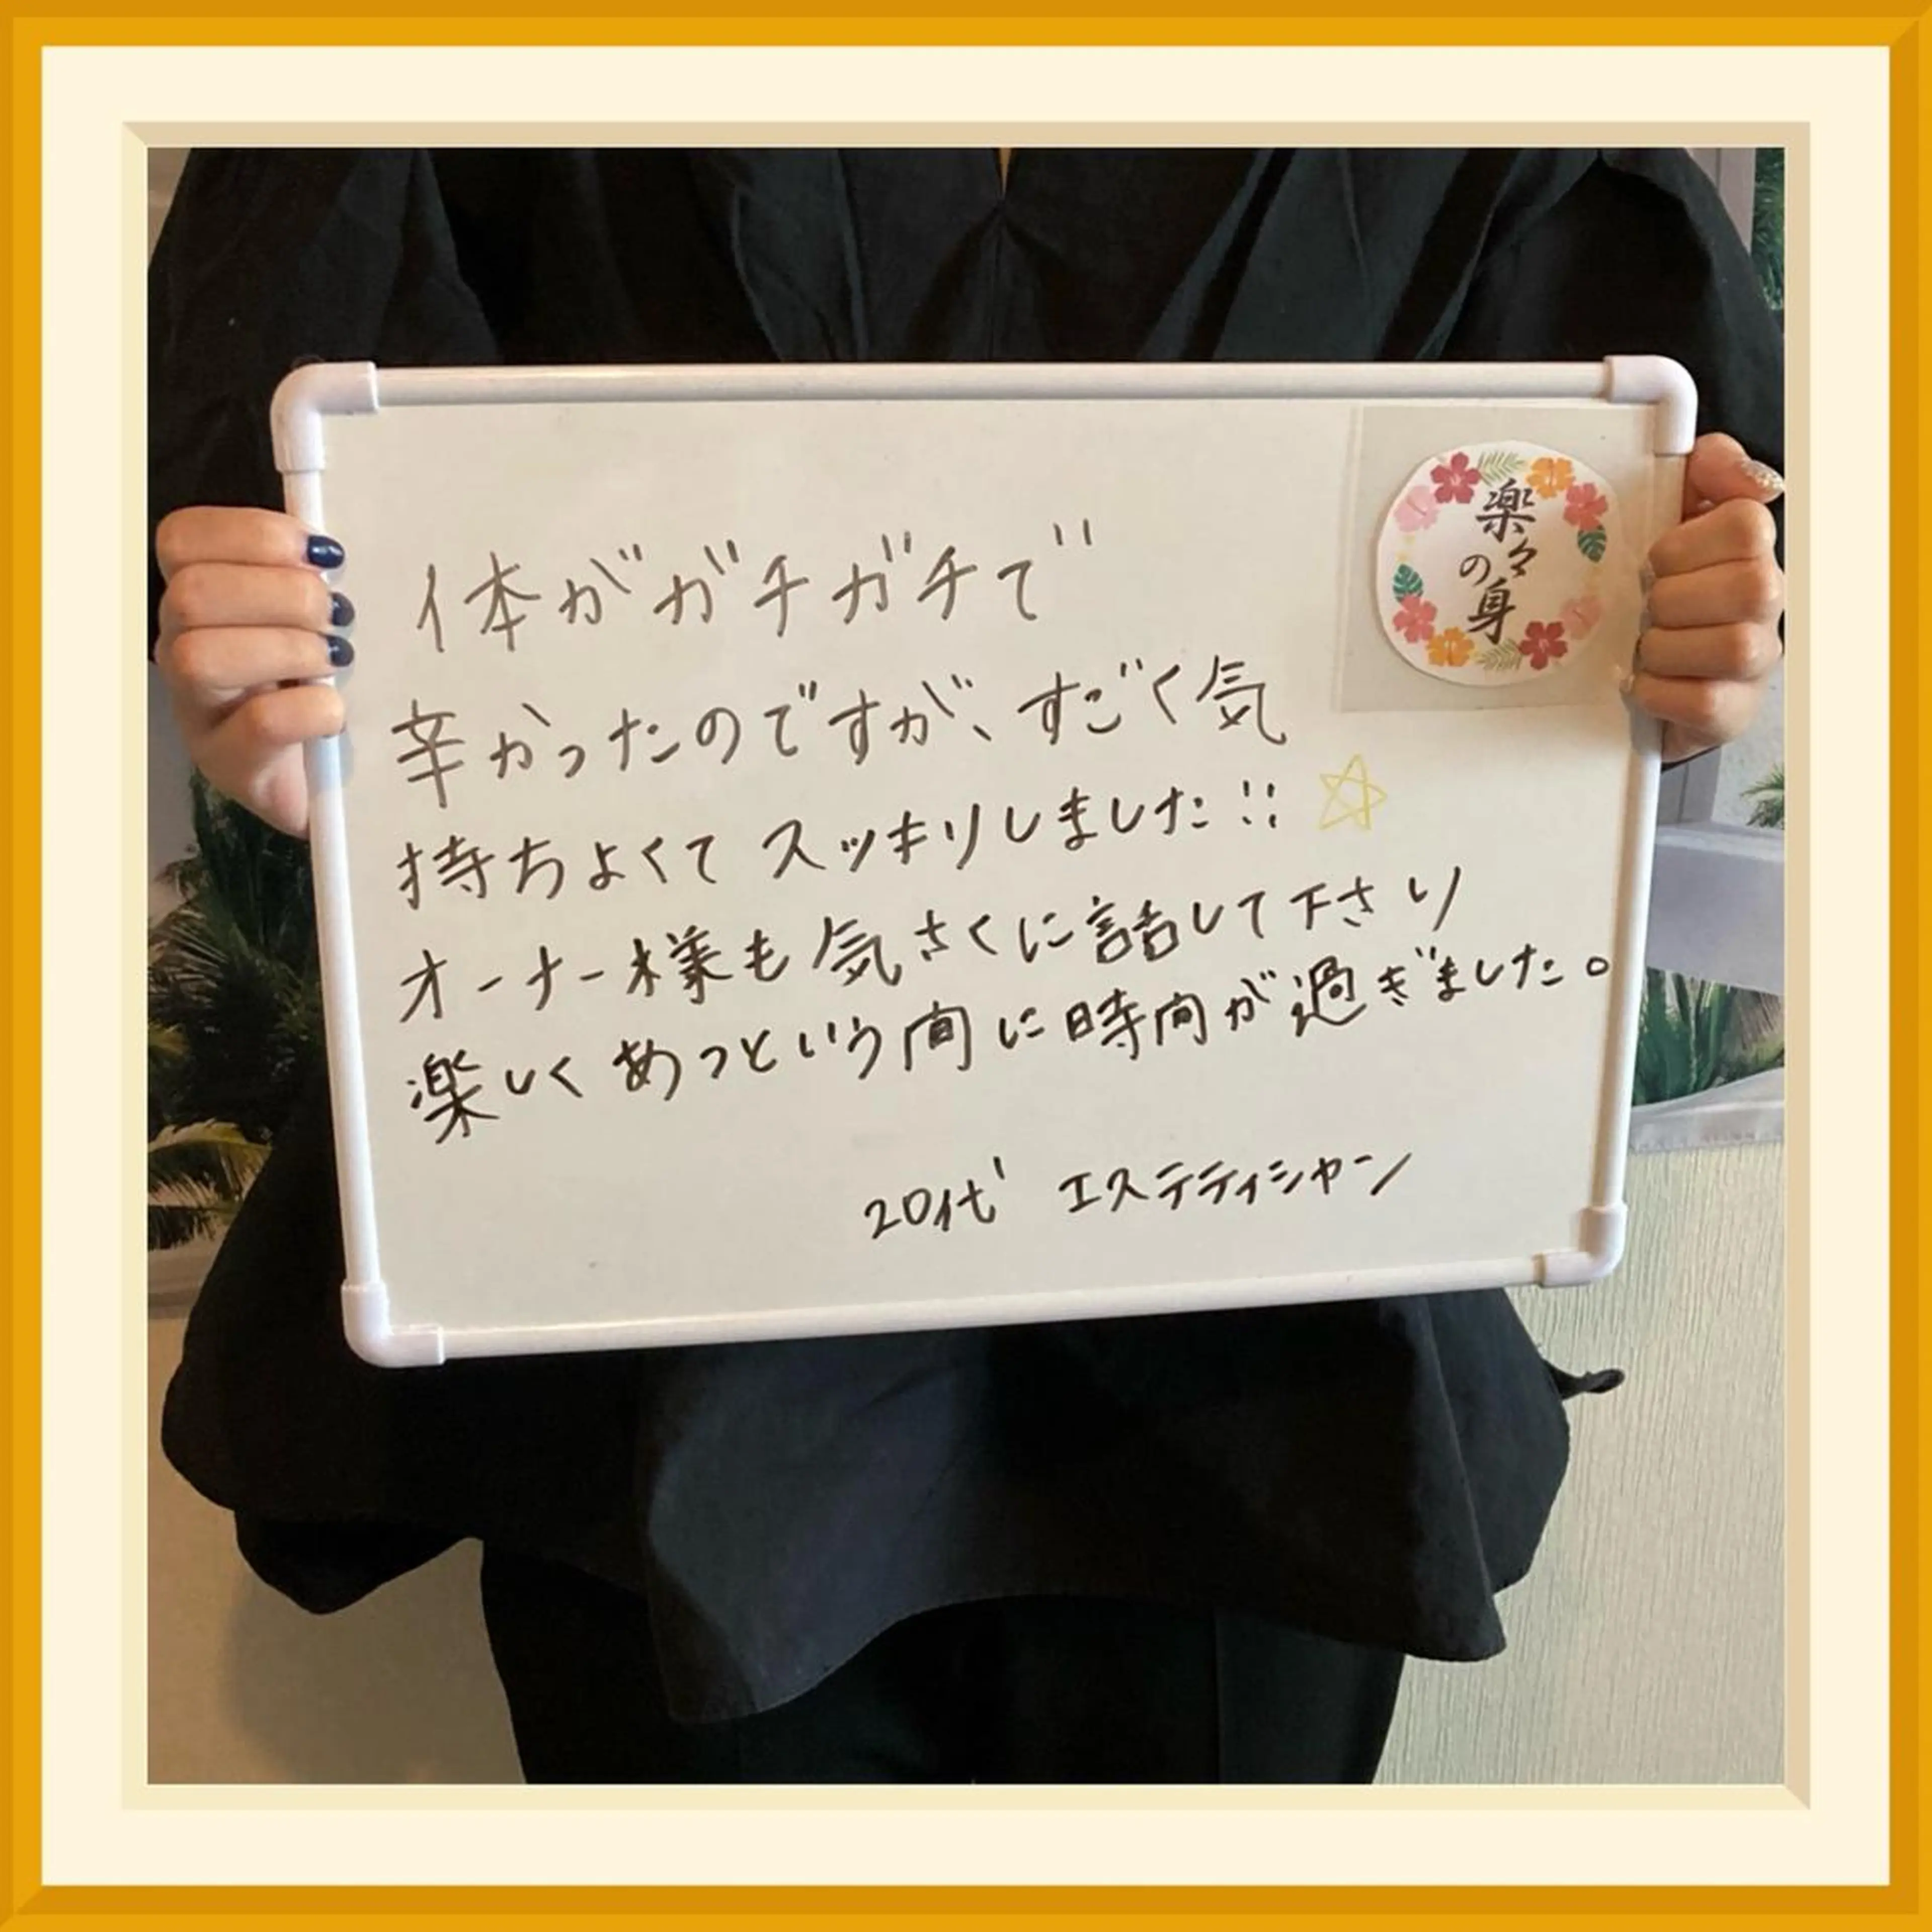 楽々
の身
体がガチガチで
辛かったのですが、すごく気
持ちよくて スッキリしました!!☆
オーナー様も気さくに話して下さり
楽しくあっという間に時間が過ぎました。
20代 エステティシャン